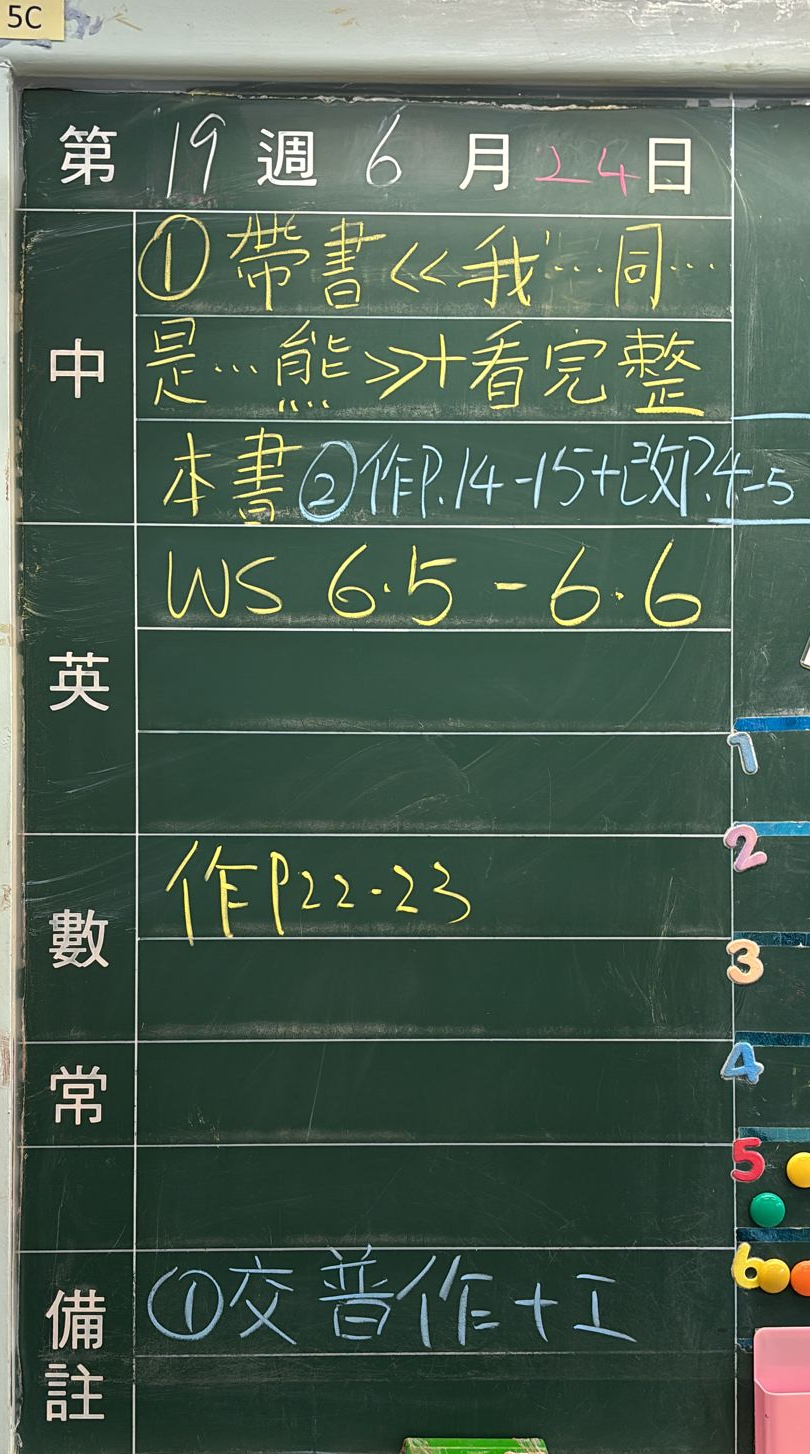 5C
第 19 週 6 月 24 日
中
①帶書<<我…同…
是…熊>>+看完整
本書②作P.14-15+改P.4-5
英
WS 6.5 - 6.6
數
作P22-23
常
備註
①交普作+工
1
2
3
4
5
6